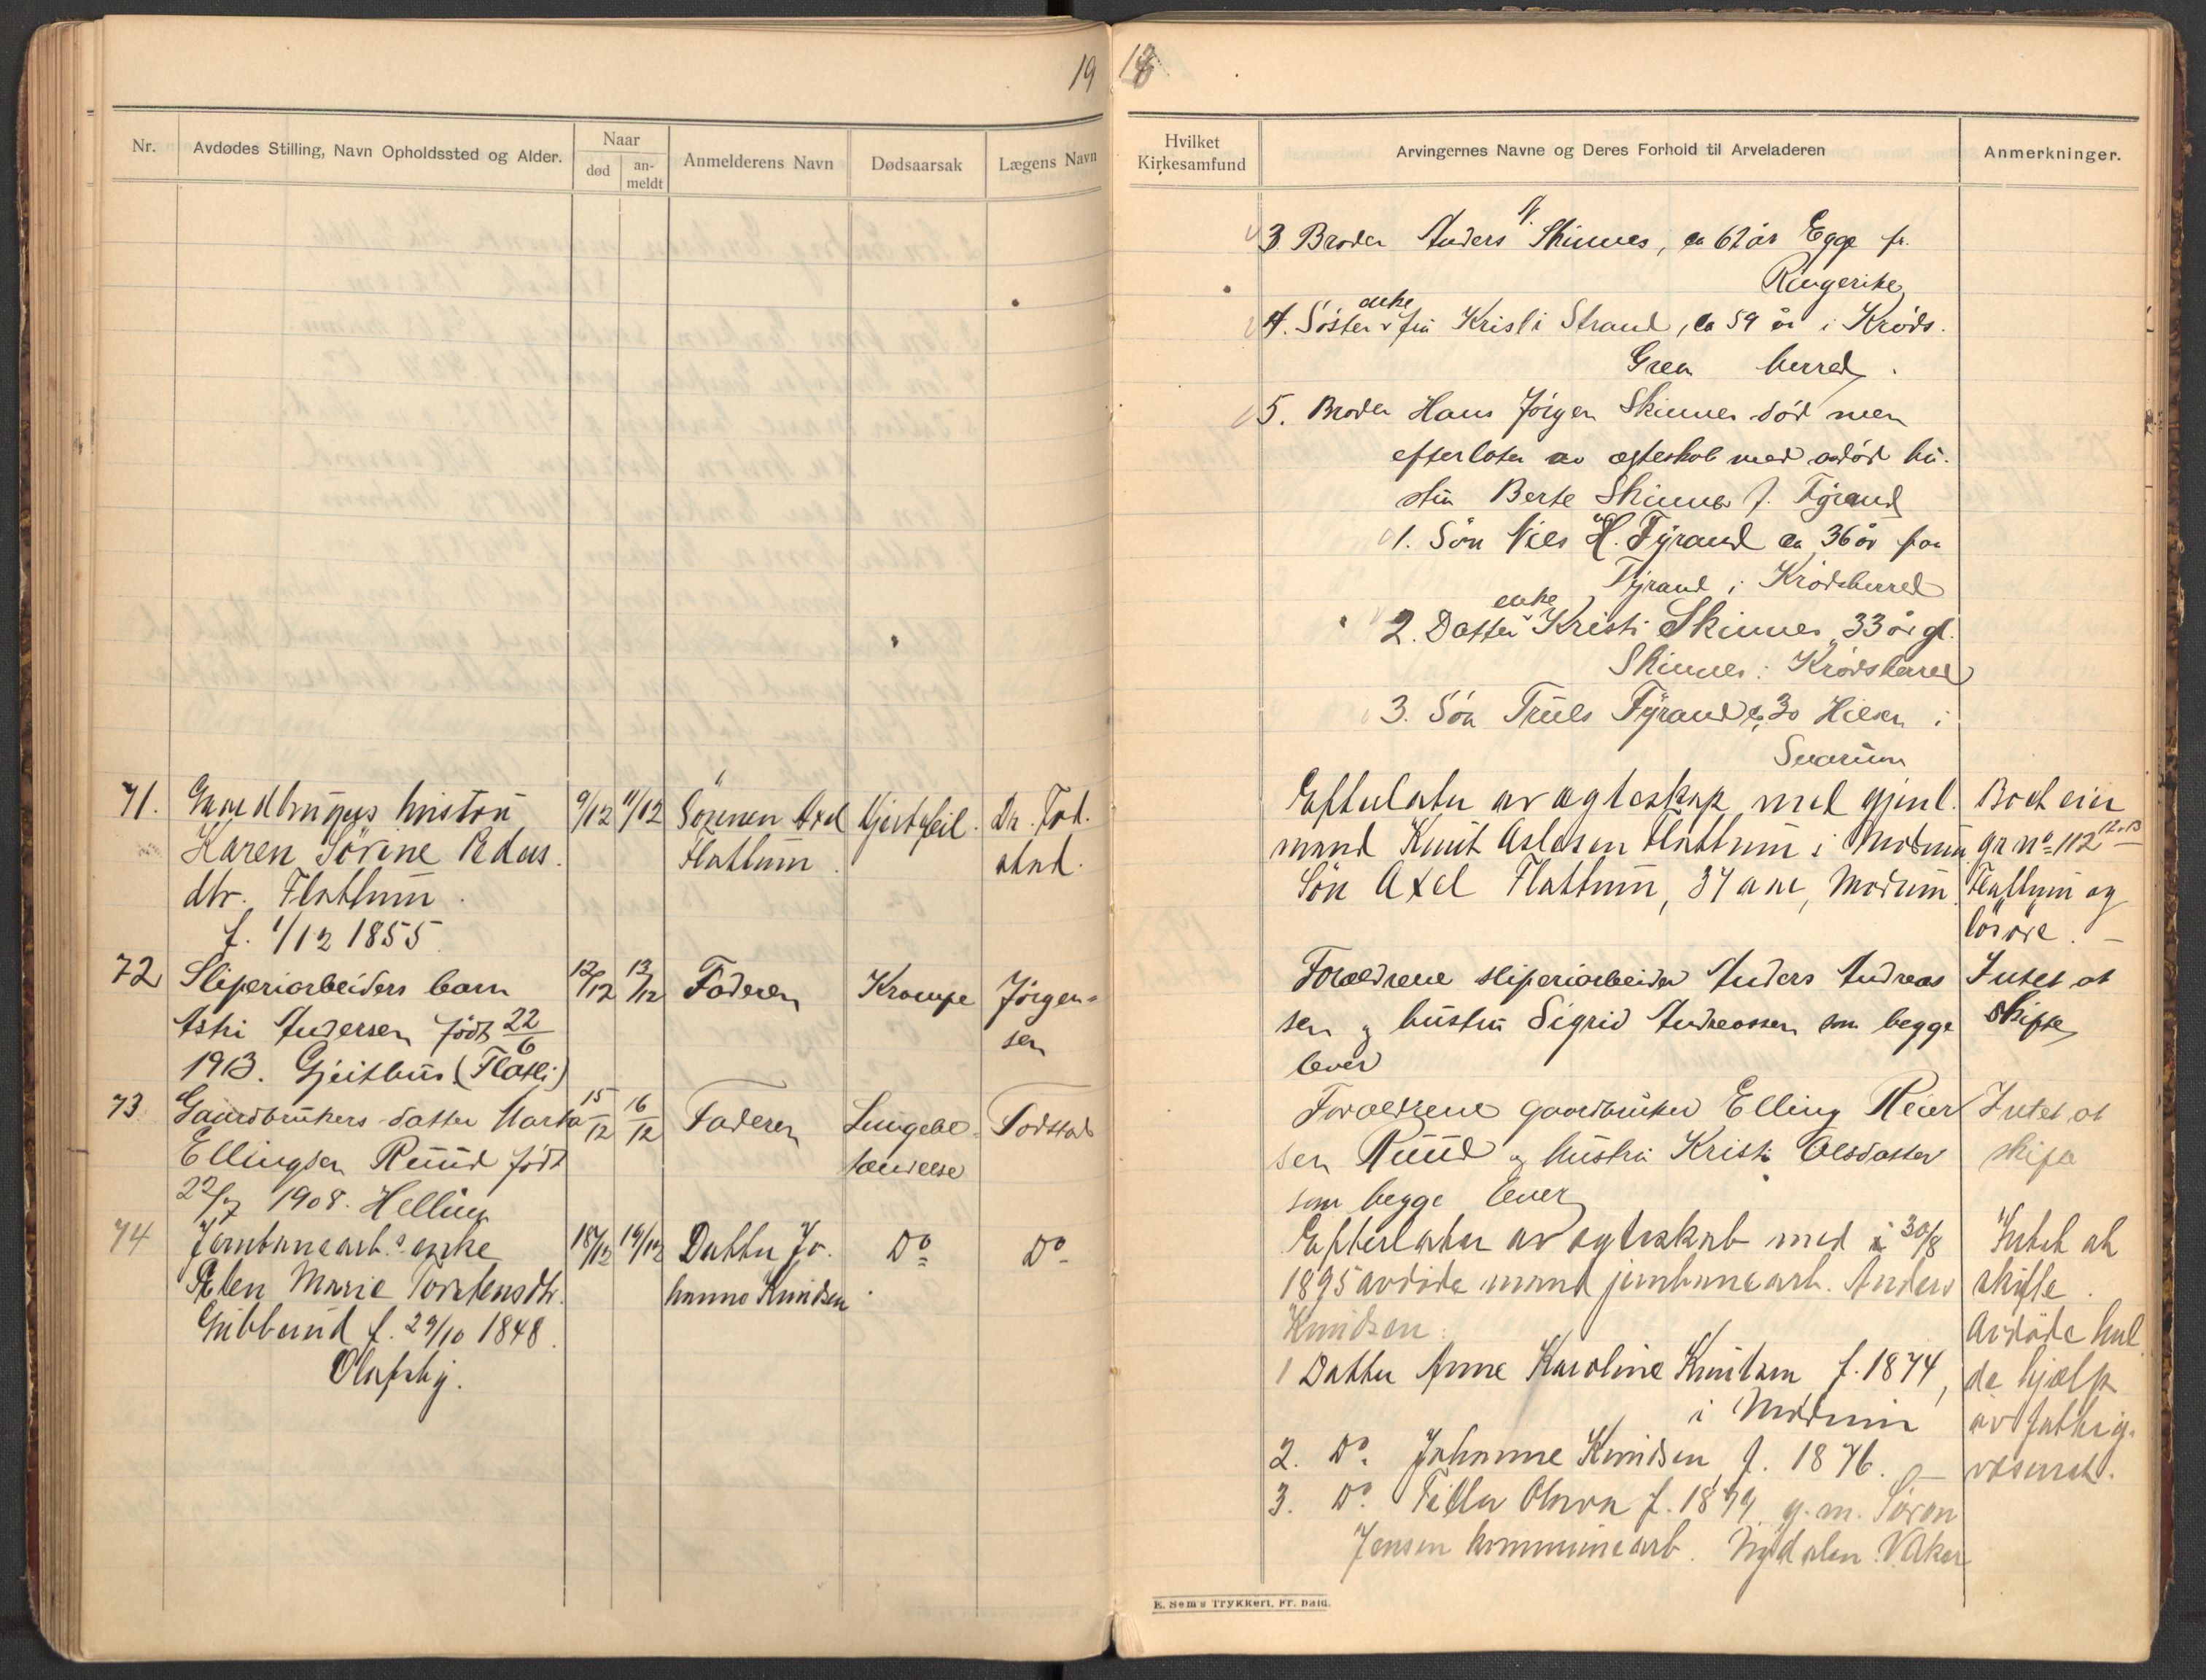 19
Nr.
Avdødes Stilling, Navn Opholdssted og Alder.
Naar
død
an-
meldt
Anmelderens Navn
Dødsaarsak
Lægens Navn
71.
Gaardbrugers hustru
Karen Sörine Peders
dtr. Flattum
f. 1/12 1855
9/12
11/12
Sönnen Axel
Flattum
Hjertefeil
Dr. Tod.
stad.
72
Sliperiarbeiders barn
Astri Andersen født 22/6
1913. Gjeithus (Flåtli)
12/12
13/12
Faderen
Krampe
Jörgen-
sen
73
Gaardbrukers datter Marta
Ellingsen Ruud født
22/7 1908. Helling
15/12
16/12
Faderen
Lungebe-
tændelse
Todstad
74
Jernbanearb.s enke
Peten Marie Torstensdtr.
Gubberud f. 29/10 1848.
Olafsby.
18/12
19/12
Datter Jo-
hanne Knudsen
Do
Do
Hvilket
Kirkesamfund
Arvingernes Navne og Deres Forhold til Arveladeren
Anmerkninger.
3 Broder Anders N. Skinnes, ca 62 år Egge pr.
Ringerike
4. Söster enke fru Kristi Strand, ca 59 år i Kröds-
Green herred.
5. Broder Hans Jörgen Skinnes död men
efterlater av egteskab med avdöd hu-
stru Berte Skinnes f. Fyrand
1. Sön Nils H. Fyrand ca 36 år paa
Fyrand i Krödsherred
2. Datter enke Kristi Skinnes 33 år gl.
Skinnes i Krödsherred
3. Sön Truls Fyrand ca 30 Hilsen i
Snarum
Efterlater av egteskap med gjenl.
mand Knut Aslesen Flattum i Modum
Sön Axel Flattum, 34 aar, Modum.
Boet eier
gr no 112 12-13
Flattum og
lösöre. –
Forældrene sliperiarbeider Anders Andreas
sen og hustru Sigrid Andreassen som begge
lever
Intet at
skifte
Forældrene gaardbruker Elling Reier
sen Ruud og hustru Kristi Olsdatter
som begge lever
Intet at
skifte
Efterlater av egteskab med i 30/8
1895 avdöde mand jernbanearb. Anders
Knudsen:
1 Datter Anne Karoline Knutsen f. 1874,
i Modum
2. Do. Johanne Knudsen f. 1876. –
3. Do. Tilla Olava f. 1879 g.m. Sören
Jensen kommunearb. Nydalen V. Aker
Intet at
skifte.
Avdöde hul
de hjælp
av fattig-
væsenet.
E. Sems Trykkeri, Fr. hald.